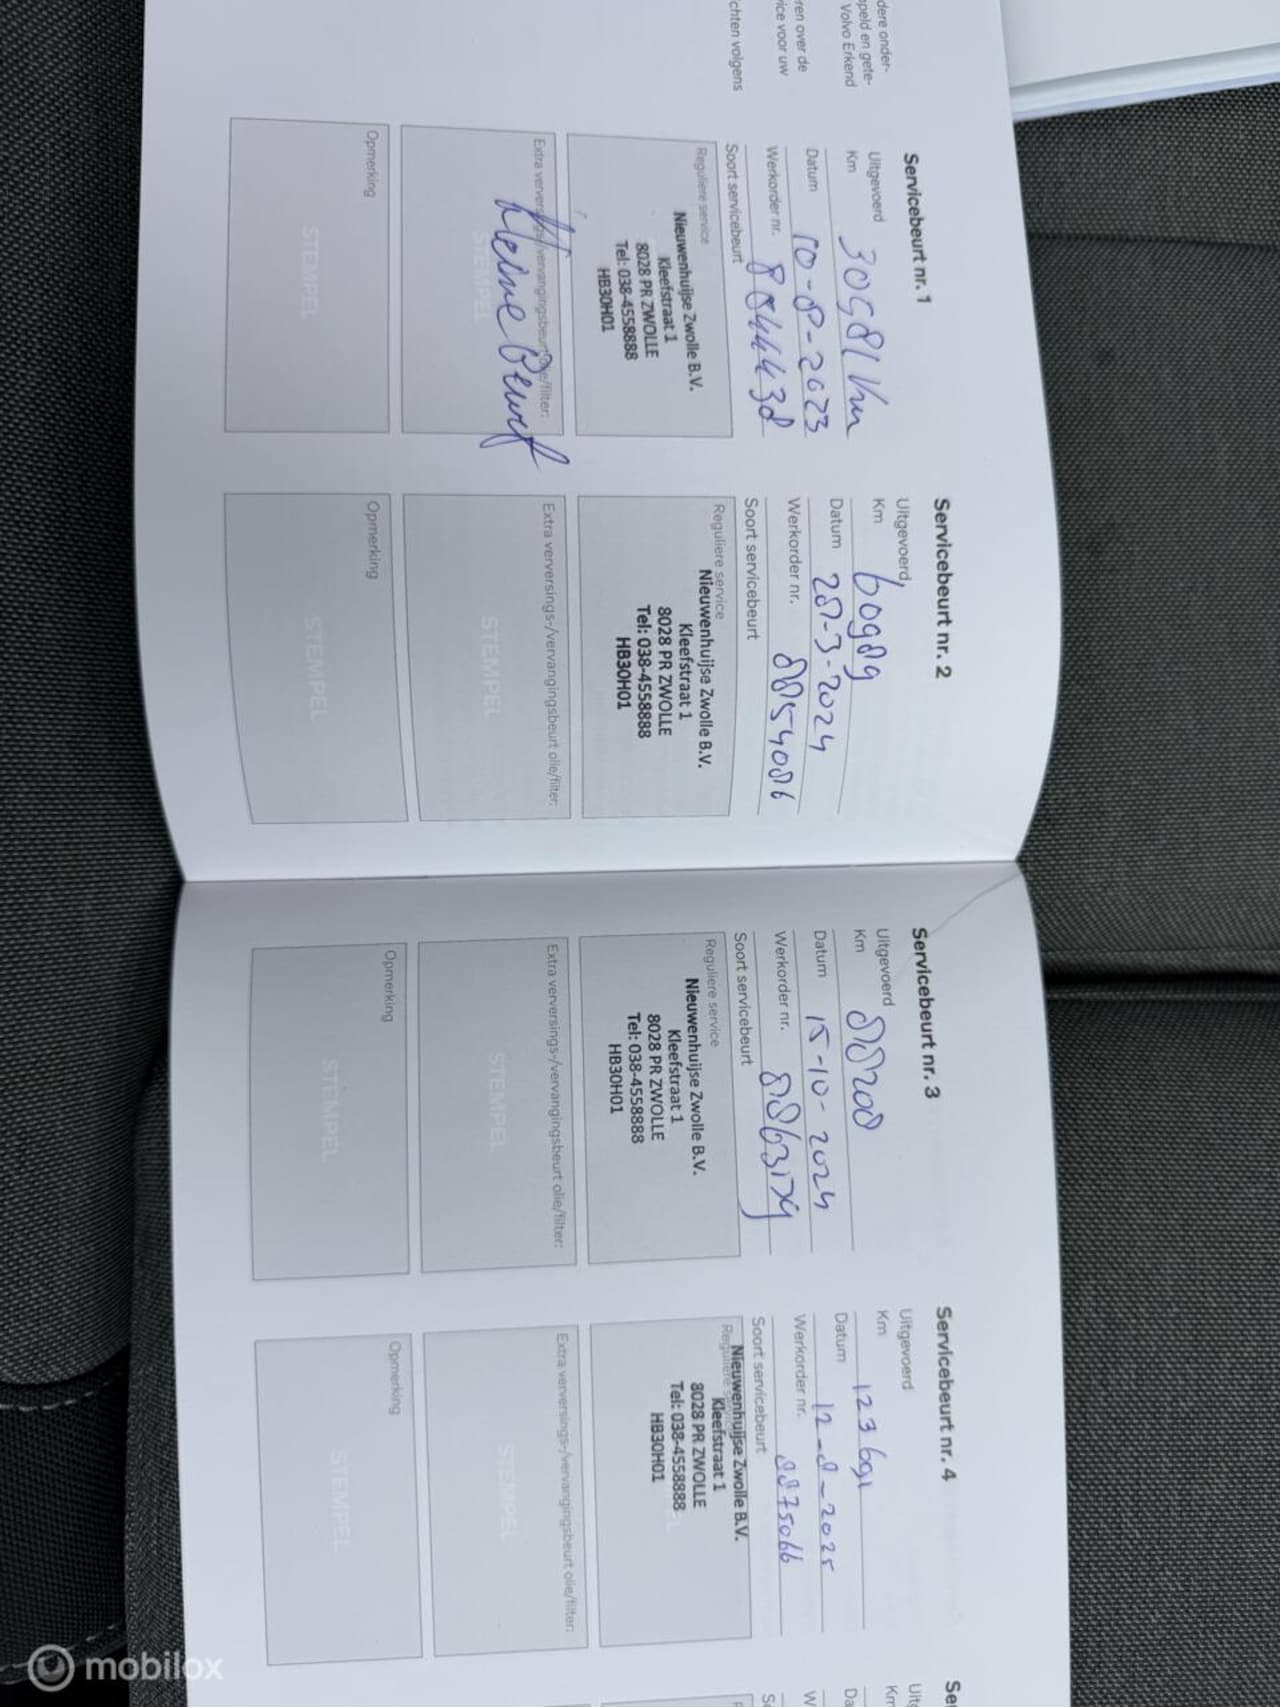 dere onder-
peld en gete-
Volvo Erkend
ren over de
ice voor uw
chten volgens
Servicebeurt nr. 1
Uitgevoerd
Km 30581 Km
Datum 10-8-2023
Werkorder nr.
Soort servicebeurt
Reguliere service
Nieuwenhuijse Zwolle B.V.
Kleefstraat 1
8028 PR ZWOLLE
Tel: 038-4558888
HB30H01
Extra verversings-/vervangingsbeurt olie/filter:
Kleine Beurt
STEMPEL
Opmerking
STEMPEL
Servicebeurt nr. 2
Uitgevoerd
Km 60989
Datum 28-3-2024
Werkorder nr. 8854086
Soort servicebeurt
Reguliere service
Nieuwenhuijse Zwolle B.V.
Kleefstraat 1
8028 PR ZWOLLE
Tel: 038-4558888
HB30H01
Extra verversings-/vervangingsbeurt olie/filter:
STEMPEL
Opmerking
STEMPEL
Servicebeurt nr. 3
Uitgevoerd
Km 88208
Datum 15-10-2024
Werkorder nr. 8863179
Soort servicebeurt
Reguliere service
Nieuwenhuijse Zwolle B.V.
Kleefstraat 1
8028 PR ZWOLLE
Tel: 038-4558888
HB30H01
Extra verversings-/vervangingsbeurt olie/filter:
STEMPEL
Opmerking
STEMPEL
Servicebeurt nr. 4
Uitgevoerd
Km 123691
Datum 12-8-2025
Werkorder nr. 8875066
Soort servicebeurt
Reguliere service
Nieuwenhuijse Zwolle B.V.
Kleefstraat 1
8028 PR ZWOLLE
Tel: 038-4558888
HB30H01
Extra verversings-/vervangingsbeurt olie/filter:
STEMPEL
Opmerking
STEMPEL
Se
Uitg
Km
Da
W
So
mobilox